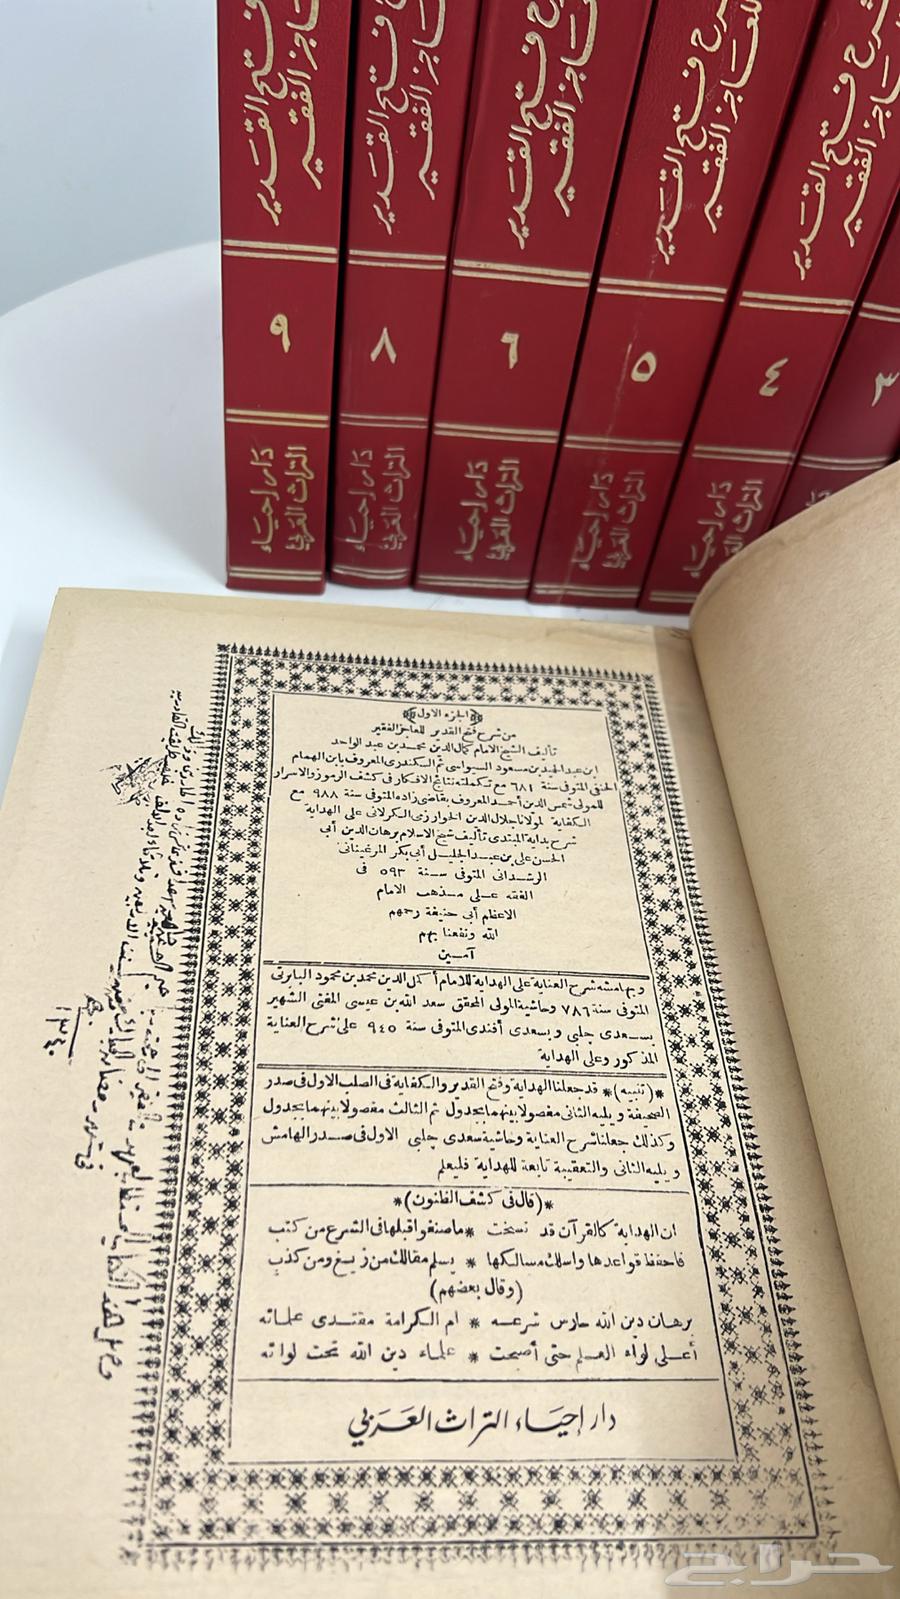 شرح فتح القدير
للعاجز الفقير
٩
دار إحياء
التراث العربي
فتح القدير
للعاجز الفقير
٨
دار إحياء
التراث العربي
شرح فتح القدير
للعاجز الفقير
٦
دار إحياء
التراث العربي
شرح فتح القدير
للعاجز الفقير
٥
دار إحياء
التراث العربي
شرح فتح القدير
للعاجز الفقير
٤
دار إحياء
التراث العربي
٣
(الجزء الاول)
من شرح فتح القدير للعاجز الفقير
تأليف الشيخ الامام كمال الدين محمد بن عبد الواحد
ابن عبد الحميد بن مسعود السيواسى ثم السكندرى المعروف بابن الهمام
الحنفى المتوفى سنة ٦٨١ مع تكملته نتائج الافكار فى كشف الرموز والاسرار
للمولى شمس الدين أحمد المعروف بقاضى زاده المتوفى سنة ٩٨٨ مع
الكفاية لمولانا جلال الدين الخوارزمى الكرلانى على الهداية
شرح بداية المبتدى تأليف شيخ الاسلام برهان الدين أبى
الحسن على بن عبد الجليل أبى بكر المرغينانى
الرشدانى المتوفى سنة ٥٩٣ فى
الفقه على مذهب الامام
الاعظم أبى حنيفة رحمهم
الله ونفعنا بهم
آمين
وبهامشه شرح العناية على الهداية للامام أكمل الدين محمد بن محمود البابرتى
المتوفى سنة ٧٨٦ وحاشية المولى المحقق سعد الله بن عيسى المفتى الشهير
بسعدى چلبى وبسعدى أفندى المتوفى سنة ٩٤٥ على شرح العناية
المذكور وعلى الهداية
*(تنبيه)* قد جعلنا الهداية وفتح القدير والكفاية فى الصلب الاول فى صدر
الصحيفة ويليه الثانى مفصولا بينهما بجدول ثم الثالث مفصولا بينهما بجدول
وكذلك جعلنا شرح العناية وحاشية سعدى چلبى الاول فى صدر الهامش
ويليه الثانى والتعقيبة تابعة للهداية فليعلم
*(قال فى كشف الظنون)*
ان الهداية كالقرآن قد نسخت * ما صنفوا قبلها فى الشرع من كتب
فاحفظ قواعدها واسلك مسالكها * يسلم مقالك من زيغ ومن كذب
(وقال بعضهم)
برهان دين الله حارس شرعه * ام الكرامة مقتدى علمائه
أعلى لواء العلم حتى أصبحت * علماء دين الله تحت لوائه
دار إحياء التراث العربي
١٣٤٠
حراج